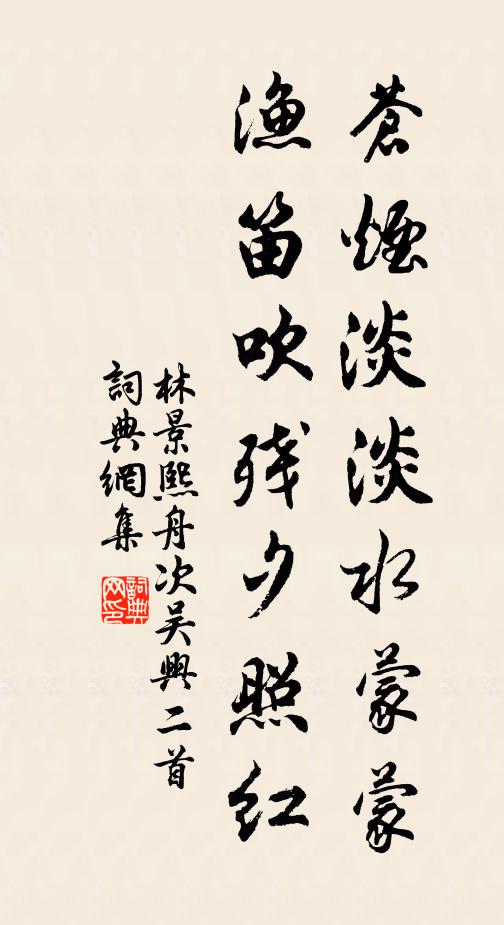 蒼煙淡淡水蒙蒙
漁笛吹残夕照紅
林景熙舟次吴興二首
詞典網集
詞典
网印